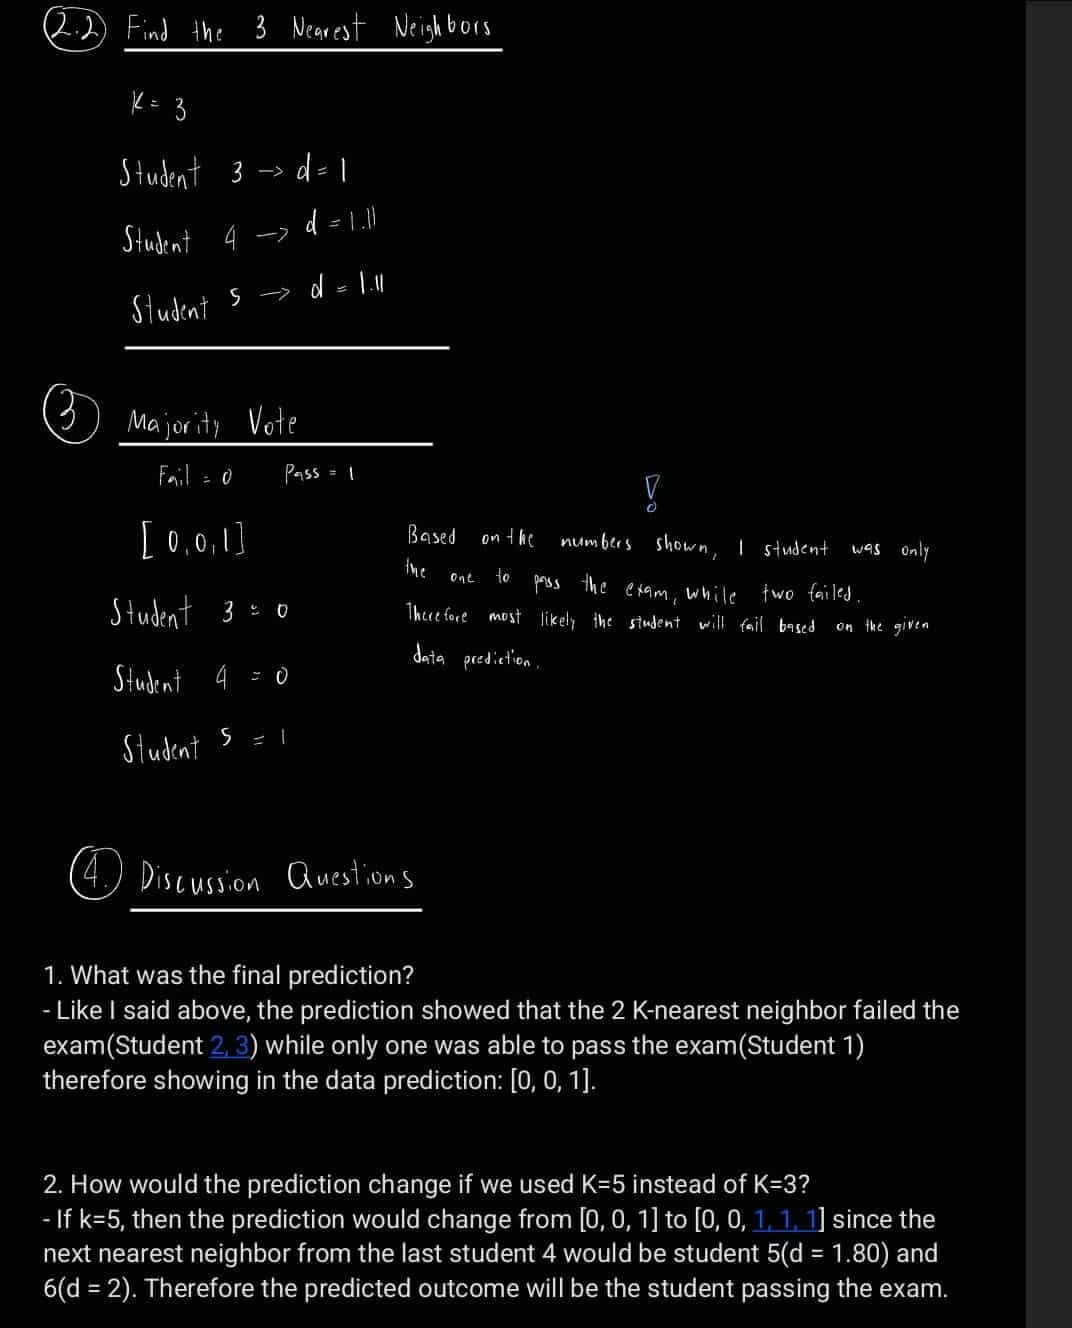 2.2 Find the 3 Nearest Neighbors
K = 3
Student 3 -> d = 1
Student 4 -> d = 1.11
Student 5 -> d = 1.11
3 Majority Vote
Fail = 0 Pass = 1
[0,0,1]
Student 3 = 0
Student 4 = 0
Student 5 = 1
Based on the numbers shown, 1 student was only
the one to pass the exam, while two failed.
Therefore most likely the student will fail based on the given
data prediction.
4. Discussion Questions
1. What was the final prediction?
- Like I said above, the prediction showed that the 2 K-nearest neighbor failed the
exam(Student 2, 3) while only one was able to pass the exam(Student 1)
therefore showing in the data prediction: [0, 0, 1].
2. How would the prediction change if we used K=5 instead of K=3?
- If k=5, then the prediction would change from [0, 0, 1] to [0, 0, 1, 1, 1] since the
next nearest neighbor from the last student 4 would be student 5(d = 1.80) and
6(d = 2). Therefore the predicted outcome will be the student passing the exam.